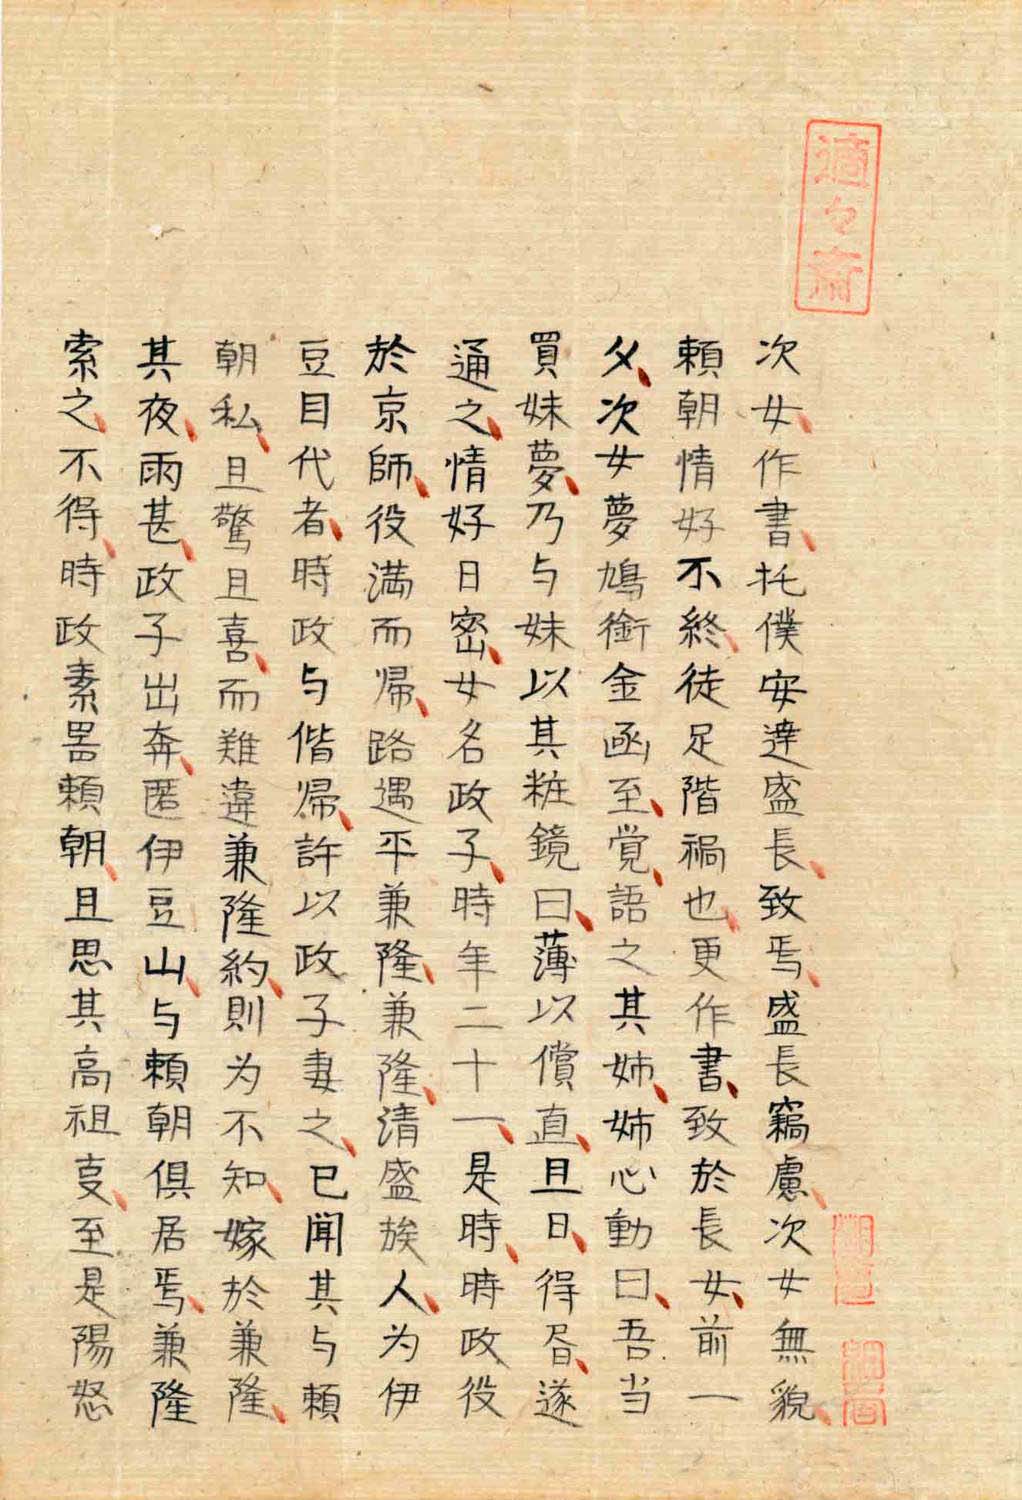 適々斎
次女、作書、托僕安達盛長、致焉、盛長竊慮、次女無貌、
頼朝情好不終、徒足階禍也、更作書、致於長女、前一
夕、次女夢鳩銜金函至、覚、語之其姉、姉心動曰、吾当
買妹夢、乃与妹以其粧鏡曰、薄以償直、且日、得書、遂
通之、情好日密、女名政子、時年二十一、是時、時政役
於京師、役満而帰、路遇平兼隆、兼隆、清盛族人、为伊
豆目代者、時政与偕帰、許以政子妻之、已聞其与頼
朝私、且驚且喜、而難違兼隆約、則为不知、嫁於兼隆、
其夜、雨甚、政子出奔、匿伊豆山、与頼朝倶居焉、兼隆
索之、不得、時政素器頼朝、且思其高祖叓、至是陽怒